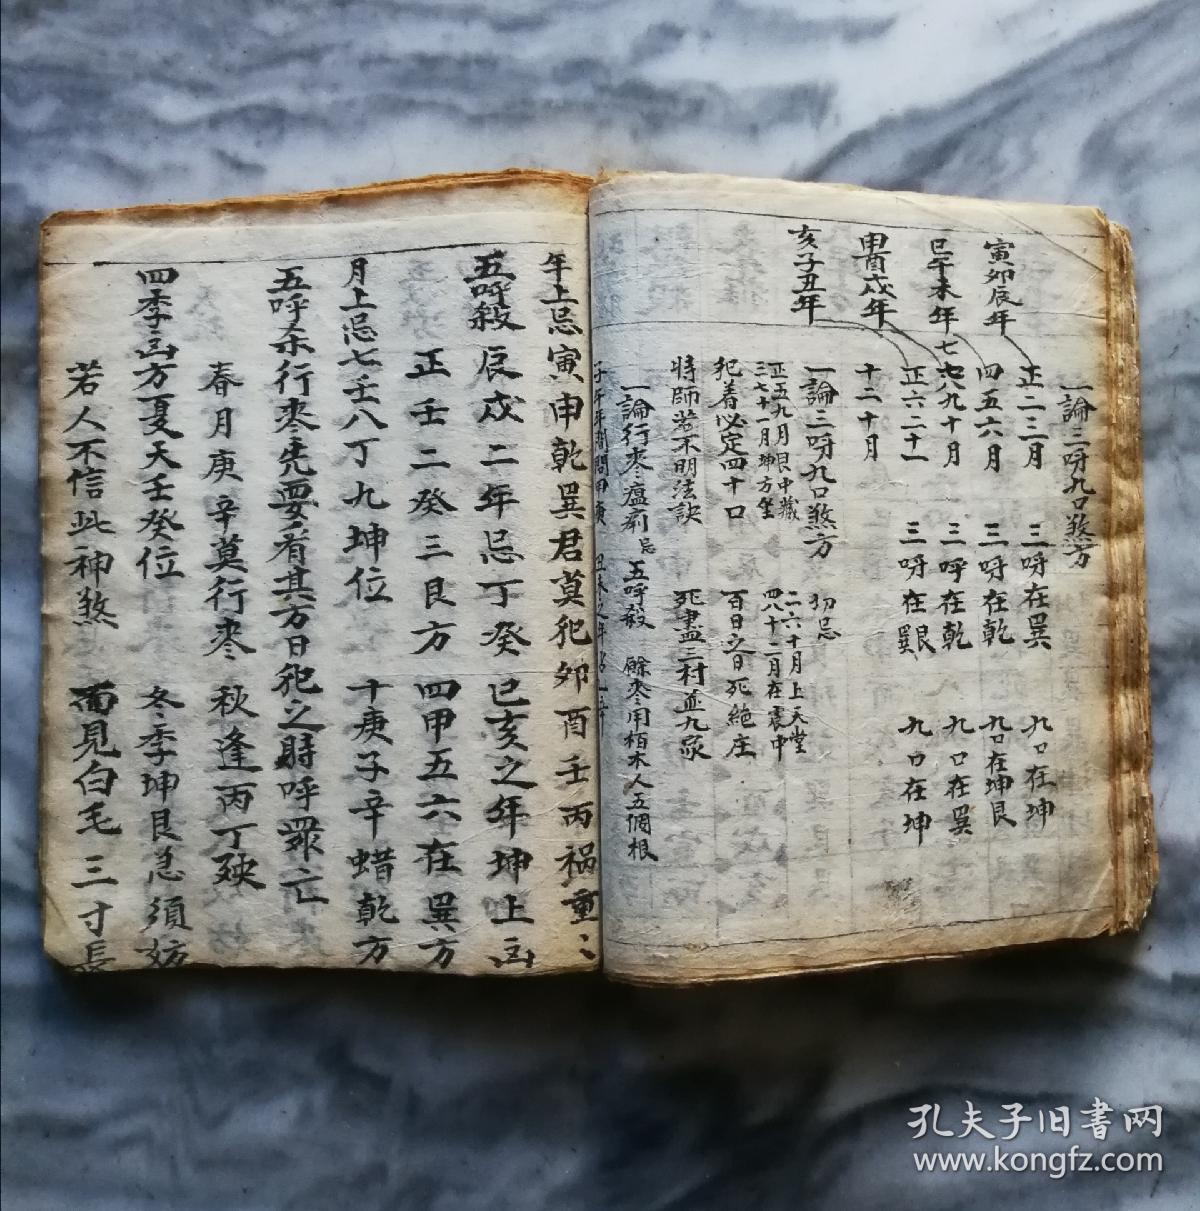 一論三呼九口煞方
寅卯辰年 正二三月 三呼在巽 九口在坤
巳午未年 四五六月 三呼在乾 九口在坤艮
申酉戌年 七八九十月 三呼在乾 九口在巽
亥子丑年 正六二十一 三呼在艮巽 九口在坤
十二十月
一論三呼九口煞方 切忌
正五九月艮中藏 二六十月上天堂
三七十一月坤方坐 四八十二月在震中
犯着必定四十口 百日之日死絶庄
時師若不明法訣 死盡三村並九家
一論行喪瘟㾐忌 五呼殺 餘喪用栢木人五個根
年上忌寅申乾巽君莫犯卯酉壬丙禍重
五呼殺 辰戌二年忌丁癸巳亥之年坤上凶
正壬二癸三艮方 四甲五六在巽方
月上忌七壬八丁九坤位 十庚子辛蜡乾方
五呼杀行喪先要看其方日犯之時呼眾亡
春月庚辛莫行喪 秋逢丙丁殃
四季凶方夏天壬癸位 冬季坤艮急須妨
若人不信此神煞 面見白毛三寸長
孔夫子旧书网
www.kongfz.com